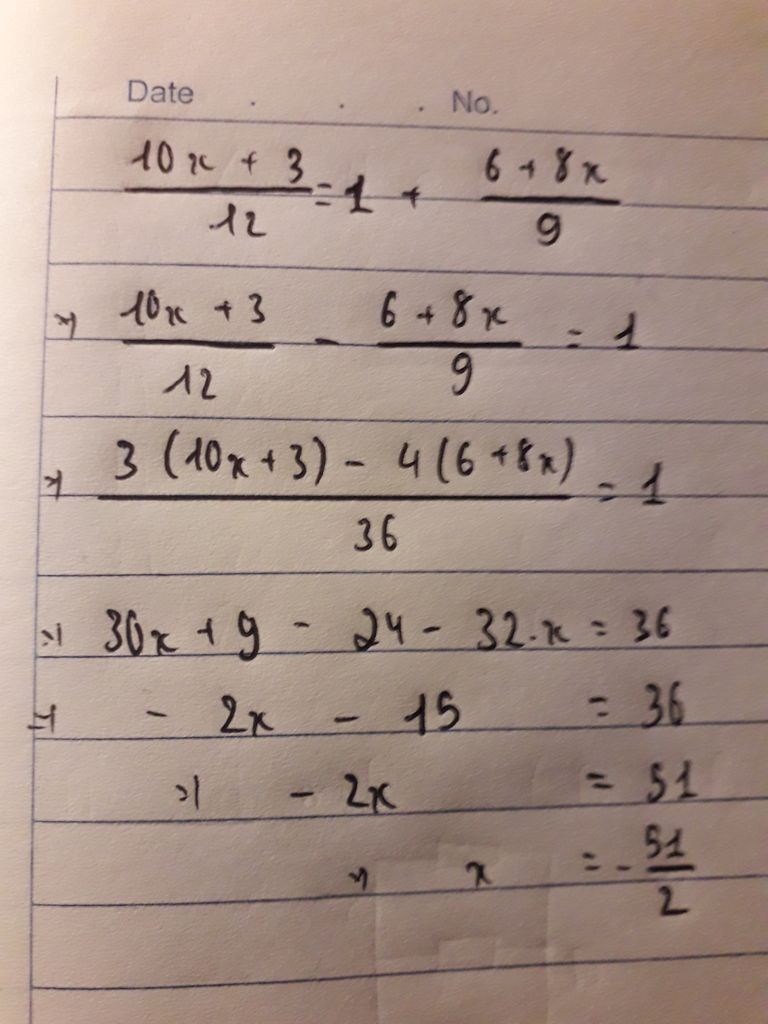 Date . . . No.
(10x + 3)/12 = 1 + (6 + 8x)/9
⇒ (10x + 3)/12 - (6 + 8x)/9 = 1
⇒ (3(10x+3) - 4(6+8x))/36 = 1
⇒ 30x + 9 - 24 - 32.x = 36
⇒ - 2x - 15 = 36
⇒ - 2x = 51
⇒ x = - 51/2